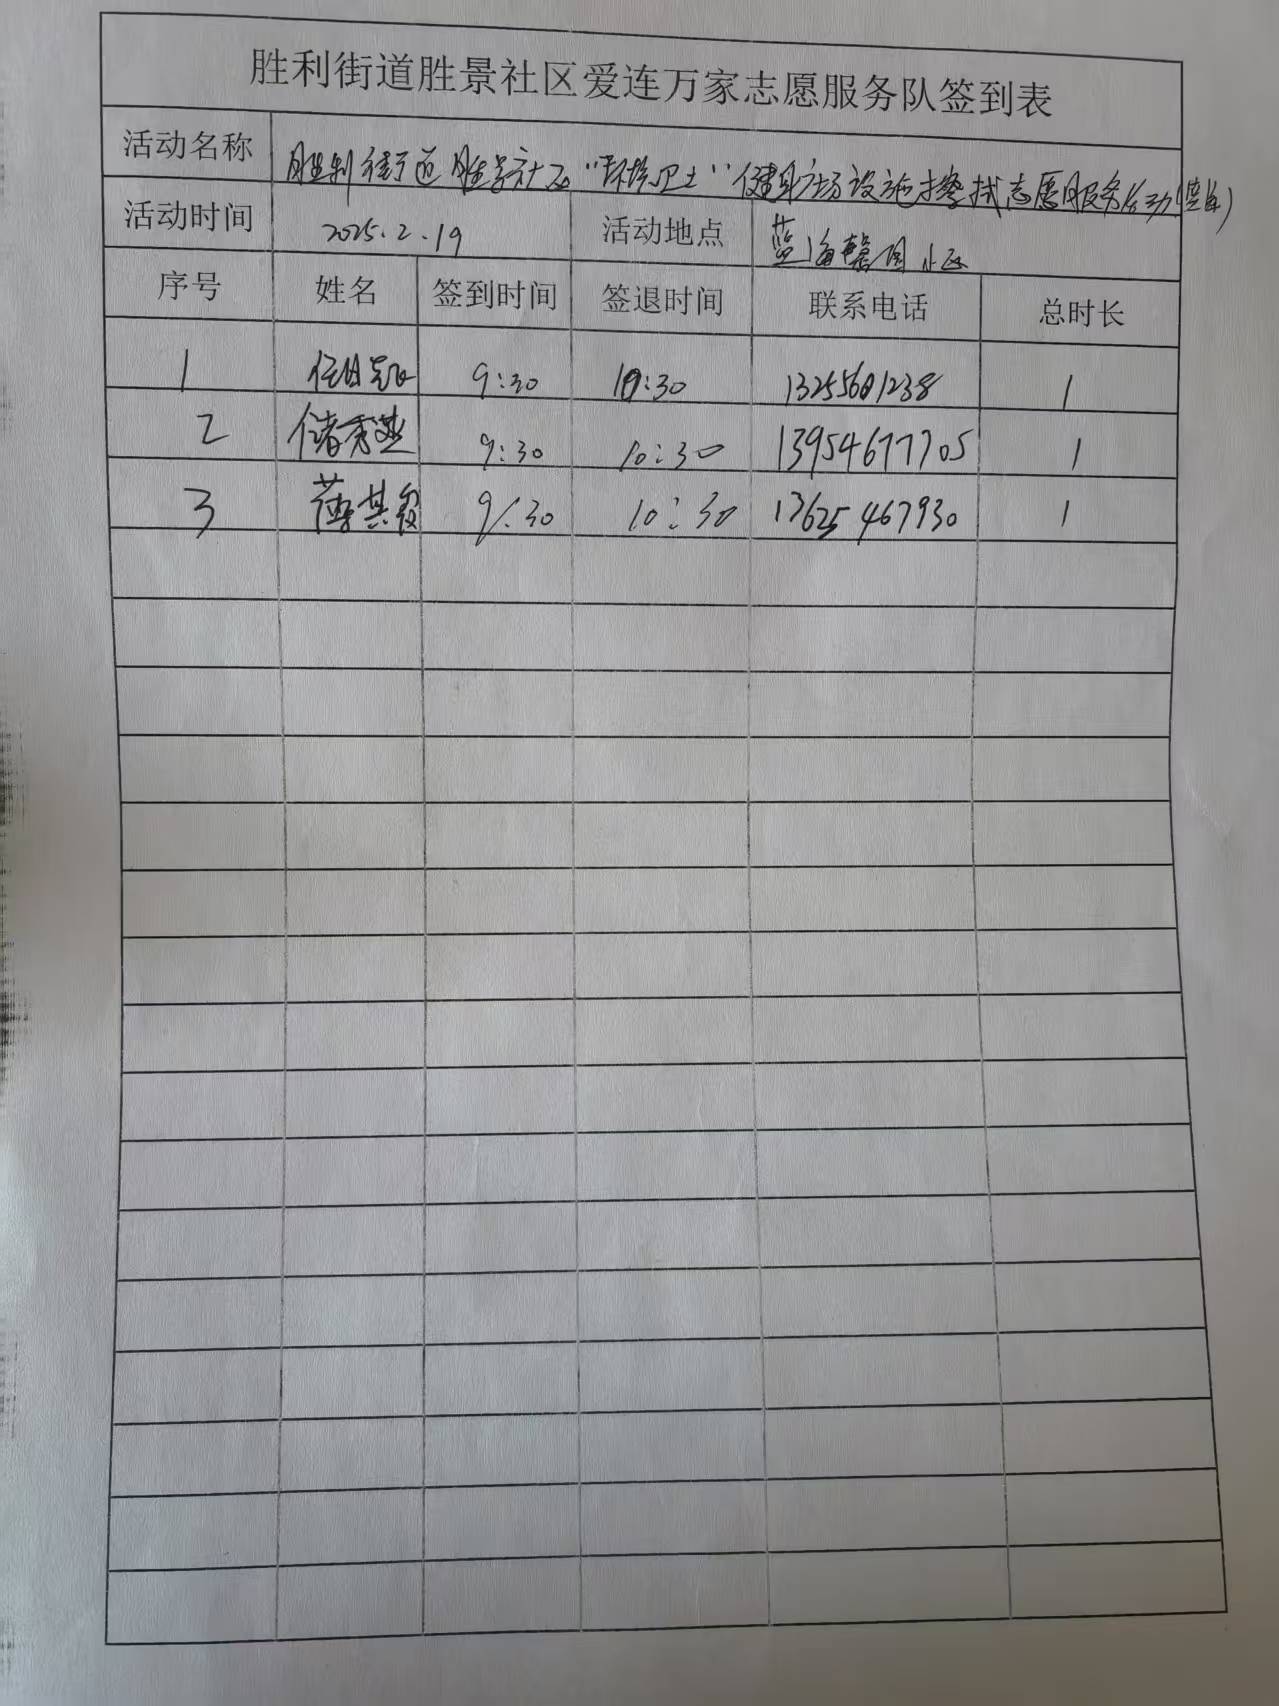 胜利街道胜景社区爱连万家志愿服务队签到表
活动名称 胜利街道胜景社区“环境卫士”健身广场设施擦拭志愿服务活动
活动时间 2025.2.19 活动地点 蓝海馨园小区
序号 姓名 签到时间 签退时间 联系电话 总时长
1 9:30 10:30 1
2 储秀 9:30 10:30 13954677705 1
3 薄其 9:30 10:30 13625467930 1